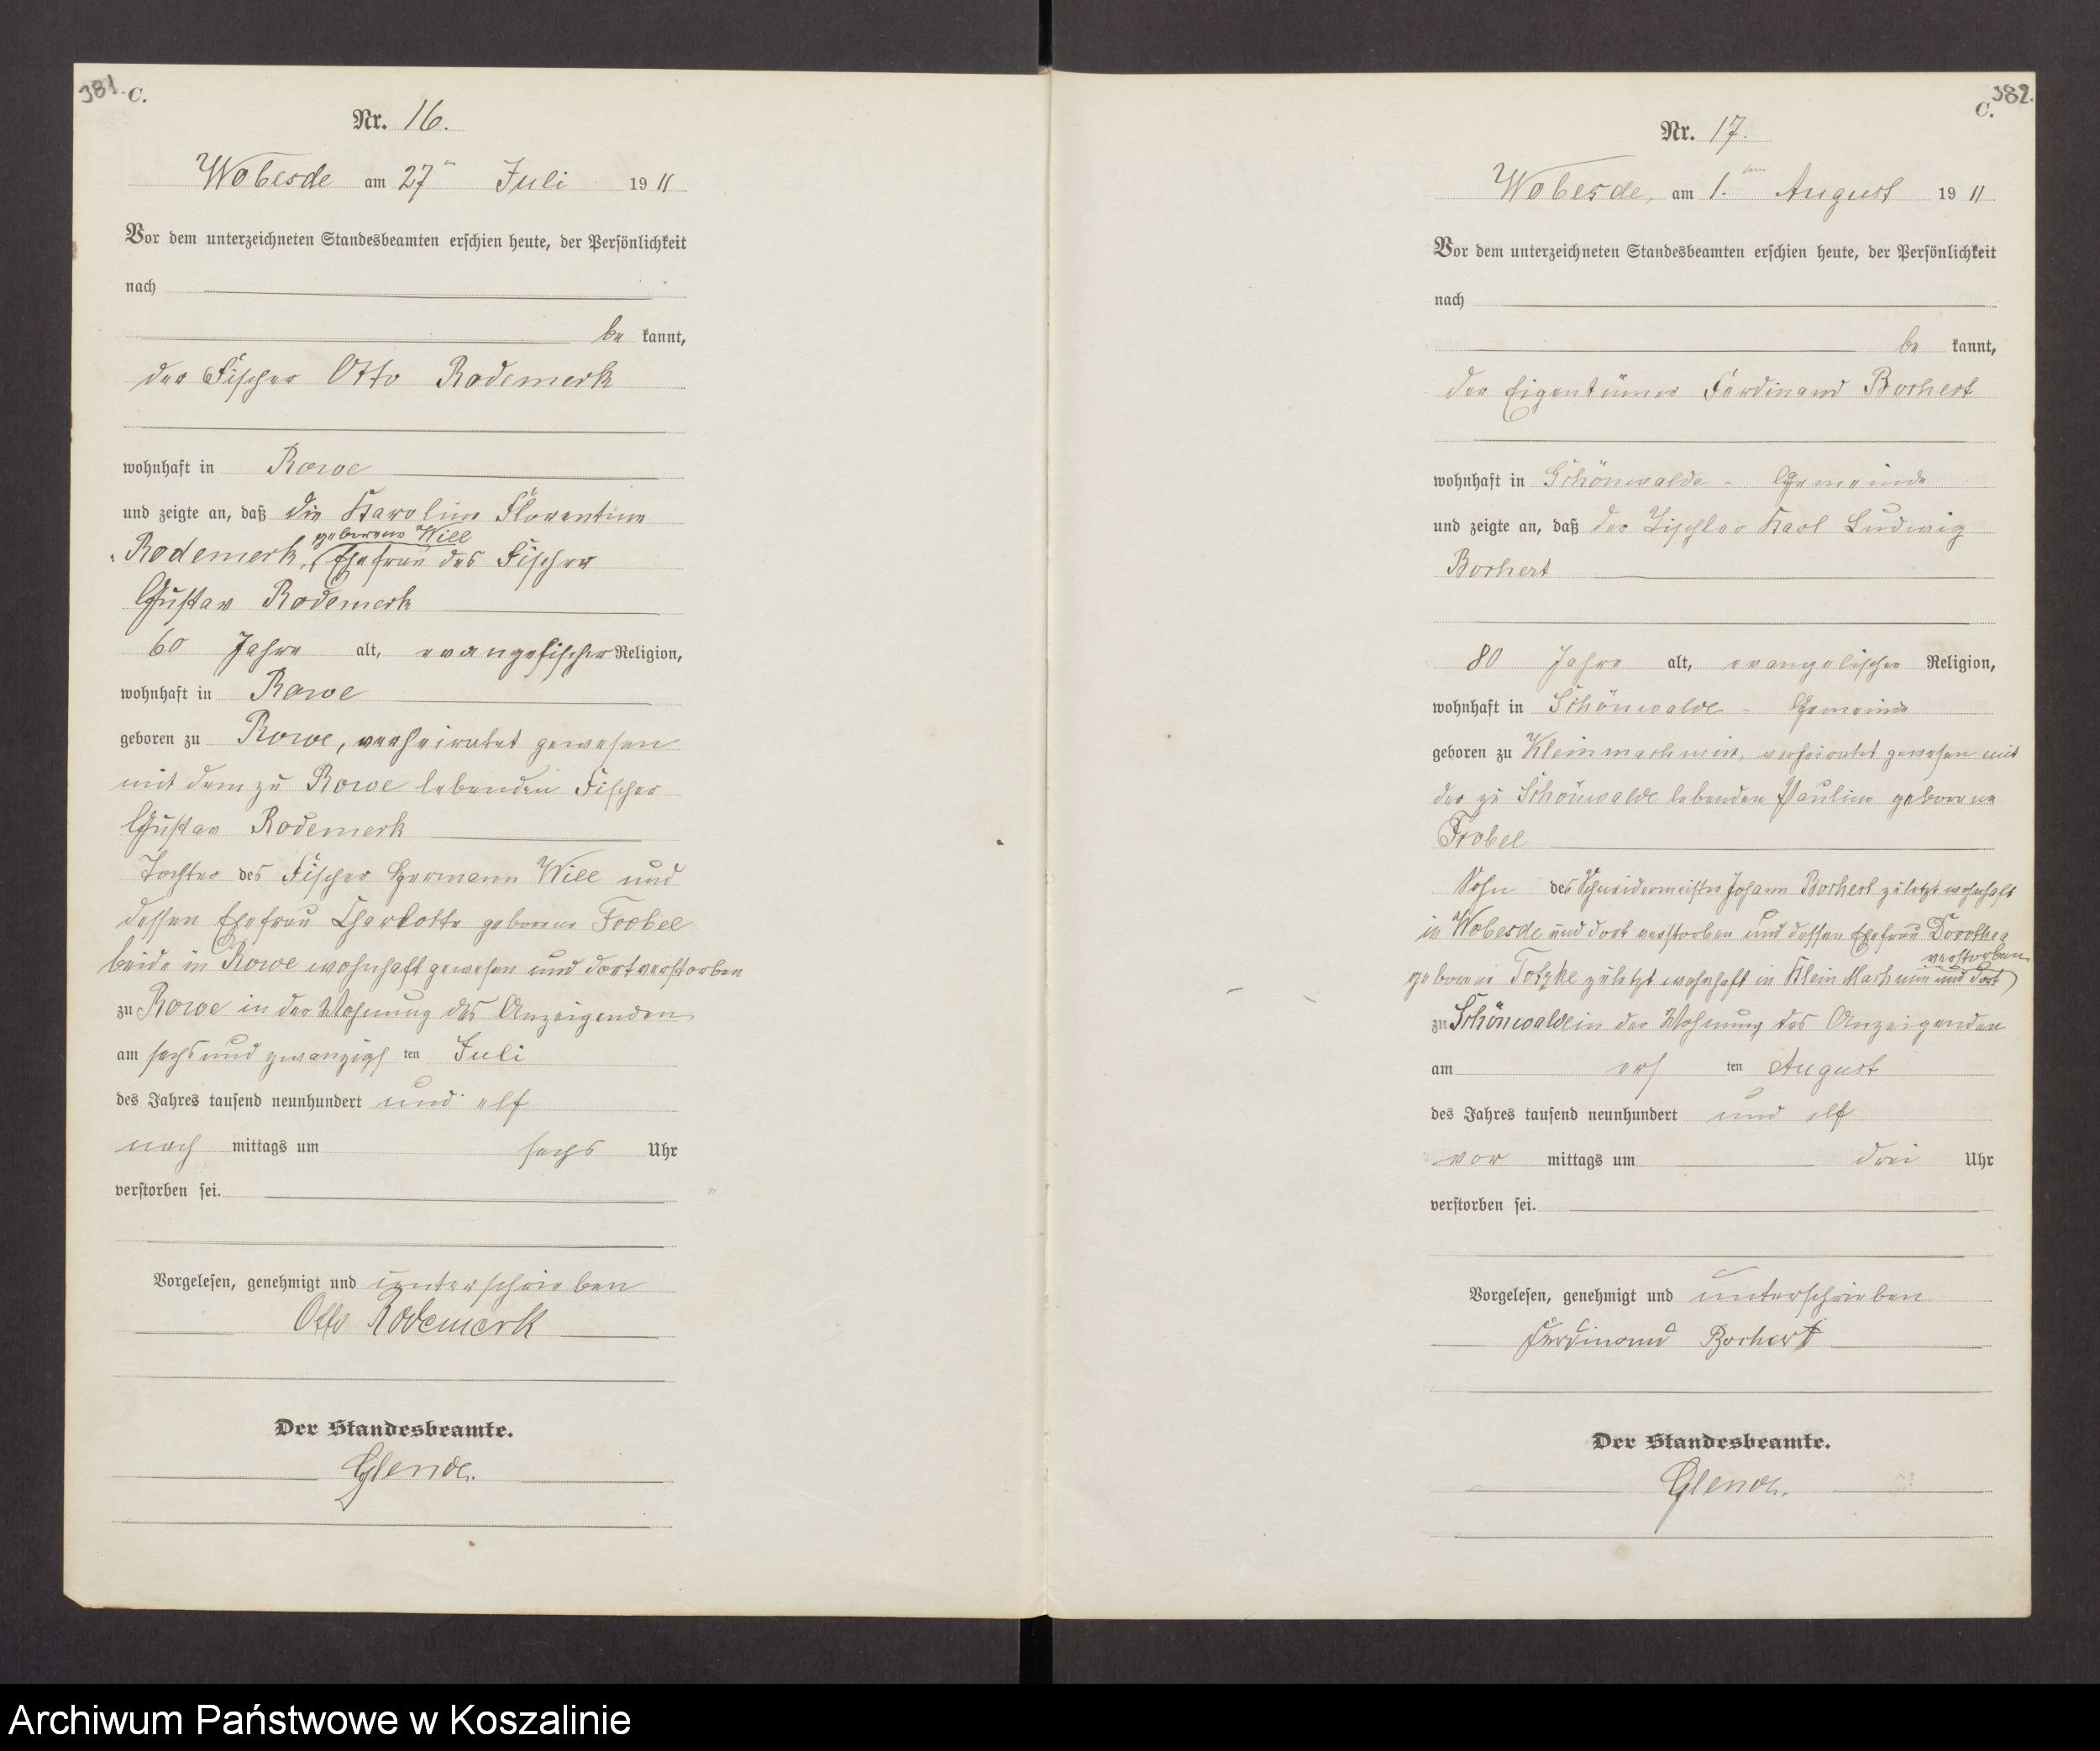 381. C.
Nr. 16.
Wobesde am 27ten Juli 1911
Vor dem unterzeichneten Standesbeamten erschien heute, der Persönlichkeit
nach
be kannt,
der Fischer Otto Rodemerk
wohnhaft in Rowe
und zeigte an, daß die Karoline Florentine
geborene Will
Rodemerk, Ehefrau des Fischer
Gustav Rodemerk
60 Jahre alt, evangelischer Religion,
wohnhaft in Rowe
geboren zu Rowe, verheiratet gewesen
mit dem zu Rowe lebenden Fischer
Gustav Rodemerk
Tochter des Fischer Hermann Will und
dessen Ehefrau Charlotte geborene Frobel
beide in Rowe wohnhaft gewesen und dort verstorben
zu Rowe in der Wohnung des Anzeigenden
am sechs und zwanzigsten Juli
des Jahres tausend neunhundert und elf
nach mittags um sechs Uhr
verstorben sei.
Vorgelesen, genehmigt und unterschrieben
Otto Rodemerk
Der Standesbeamte.
Glende.
382.
C.
Nr. 17.
Wobesde, am 1. ten August 1911
Vor dem unterzeichneten Standesbeamten erschien heute, der Persönlichkeit
nach
be kannt,
der Eigentümer Ferdinand Borhert
wohnhaft in Schönwalde - Gemeinde
und zeigte an, daß der Tischler Karl Ludwig
Borhert
80 Jahre alt, evangelischer Religion,
wohnhaft in Schönwalde - Gemeinde
geboren zu Kleinmachmin, verheiratet gewesen mit
der zu Schönwalde lebenden Pauline geborene
Frobel
Sohn des Schneidermeister Johann Borhert zuletzt wohnhaft
in Wobesde und dort verstorben und dessen Ehefrau Dorothea
verstorben
geborene Totzke zuletzt wohnhaft in Klein Machmin und dort
zu Schönwalde in der Wohnung des Anzeigenden
am ersten August
des Jahres tausend neunhundert und elf
vor mittags um drei Uhr
verstorben sei.
Vorgelesen, genehmigt und unterschrieben
Ferdinand Borhert
Der Standesbeamte.
Glende.
Archiwum Państwowe w Koszalinie